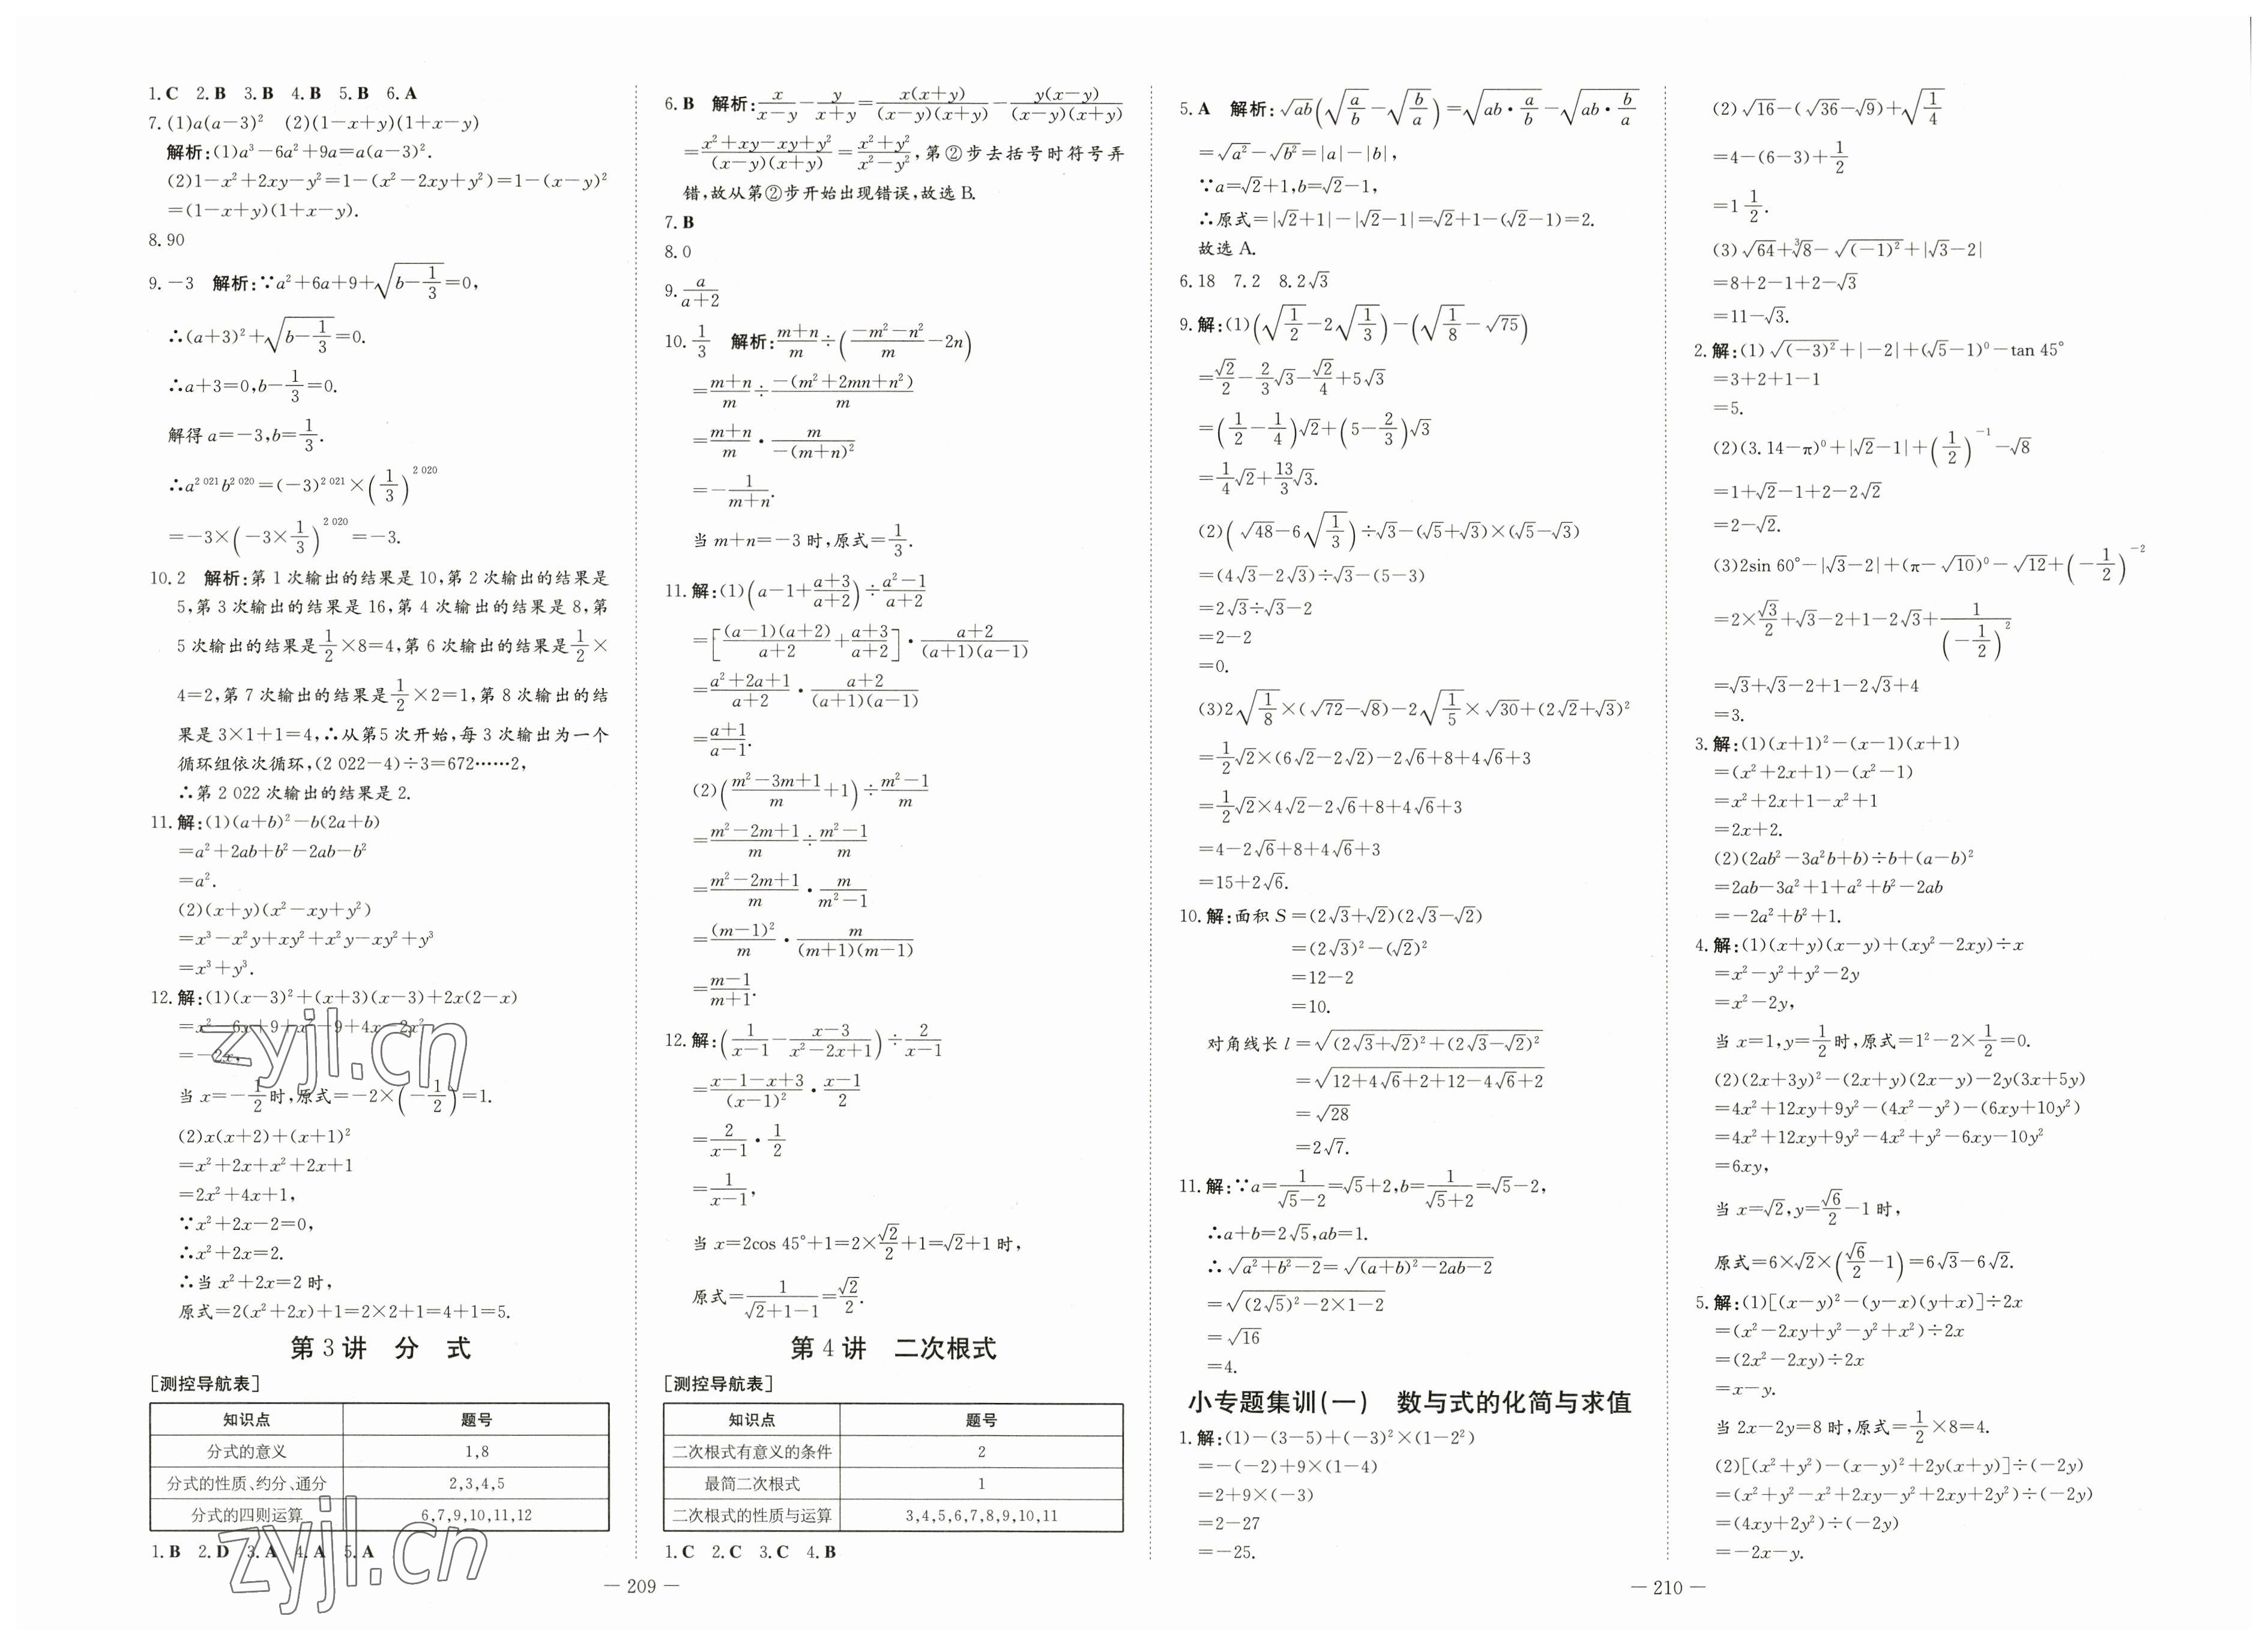 1.C 2.B 3.B 4.B 5.B 6.A
7.(1)a(a-3)² (2)(1-x+y)(1+x-y)
解析:(1)a³-6a²+9a=a(a-3)².
(2)1-x²+2xy-y²=1-(x²-2xy+y²)=1-(x-y)²
=(1-x+y)(1+x-y).
8.90
9.-3 解析:∵a²+6a+9+√(b-1/3)=0,
∴(a+3)²+√(b-1/3)=0.
∴a+3=0,b-1/3=0.
解得a=-3,b=1/3.
∴a^{2 021}b^{2 020}=(-3)^{2 021}×(1/3)^{2 020}
=-3×(-3×1/3)^{2 020}=-3.
10.2 解析:第1次输出的结果是10,第2次输出的结果是
5,第3次输出的结果是16,第4次输出的结果是8,第
5次输出的结果是1/2×8=4,第6次输出的结果是1/2×
4=2,第7次输出的结果是1/2×2=1,第8次输出的结
果是3×1+1=4,∴从第5次开始,每3次输出为一个
循环组依次循环,(2 022-4)÷3=672……2,
∴第2 022次输出的结果是2.
11.解:(1)(a+b)²-b(2a+b)
=a²+2ab+b²-2ab-b²
=a².
(2)(x+y)(x²-xy+y²)
=x³-x²y+xy²+x²y-xy²+y³
=x³+y³.
12.解:(1)(x-3)²+(x+3)(x-3)+2x(2-x)
=x²-6x+9+x²-9+4x-2x²
=-2x,
当x=-1/2时,原式=-2×(-1/2)=1.
(2)x(x+2)+(x+1)²
=x²+2x+x²+2x+1
=2x²+4x+1,
∵x²+2x-2=0,
∴x²+2x=2.
∴当x²+2x=2时,
原式=2(x²+2x)+1=2×2+1=4+1=5.
第3讲 分 式
[测控导航表]
知识点 题号
分式的意义 1,8
分式的性质、约分、通分 2,3,4,5
分式的四则运算 6,7,9,10,11,12
1.B 2.D 3.A 4.A 5.A
6.B 解析:x/(x-y)-y/(x+y)=x(x+y)/((x-y)(x+y))-y(x-y)/((x-y)(x+y))
=(x²+xy-xy+y²)/((x-y)(x+y))=(x²+y²)/(x²-y²),第②步去括号时符号弄
错,故从第②步开始出现错误,故选B.
7.B
8.0
9.a/(a+2)
10.1/3 解析:(m+n)/m÷((-m²-n²)/m-2n)
=(m+n)/m÷(-(m²+2mn+n²))/m
=(m+n)/m·m/(-(m+n)²)
=-1/(m+n).
当m+n=-3时,原式=1/3.
11.解:(1)(a-1+(a+3)/(a+2))÷(a²-1)/(a+2)
=[(a-1)(a+2)/(a+2)+(a+3)/(a+2)]·(a+2)/((a+1)(a-1))
=(a²+2a+1)/(a+2)·(a+2)/((a+1)(a-1))
=(a+1)/(a-1).
(2)((m²-3m+1)/m+1)÷(m²-1)/m
=(m²-2m+1)/m÷(m²-1)/m
=(m²-2m+1)/m·m/(m²-1)
=(m-1)²/m·m/((m+1)(m-1))
=(m-1)/(m+1).
12.解:(1/(x-1)-(x-3)/(x²-2x+1))÷2/(x-1)
=(x-1-x+3)/(x-1)²·(x-1)/2
=2/(x-1)·1/2
=1/(x-1),
当x=2cos 45°+1=2×√2/2+1=√2+1时,
原式=1/(√2+1-1)=√2/2.
第4讲 二次根式
[测控导航表]
知识点 题号
二次根式有意义的条件 2
最简二次根式 1
二次根式的性质与运算 3,4,5,6,7,8,9,10,11
1.C 2.C 3.C 4.B
— 209 —
5.A 解析:√ab(√(a/b)-√(b/a))=√(ab·a/b)-√(ab·b/a)
=√a²-√b²=|a|-|b|,
∵a=√2+1,b=√2-1,
∴原式=|√2+1|-|√2-1|=√2+1-(√2-1)=2.
故选A.
6.18 7.2 8.2√3
9.解:(1)(√(1/2)-2√(1/3))-(√(1/8)-√75)
=√2/2-2/3√3-√2/4+5√3
=(1/2-1/4)√2+(5-2/3)√3
=1/4√2+13/3√3.
(2)(√48-6√(1/3))÷√3-(√5+√3)×(√5-√3)
=(4√3-2√3)÷√3-(5-3)
=2√3÷√3-2
=2-2
=0.
(3)2√(1/8)×(√72-√8)-2√(1/5)×√30+(2√2+√3)²
=1/2√2×(6√2-2√2)-2√6+8+4√6+3
=1/2√2×4√2-2√6+8+4√6+3
=4-2√6+8+4√6+3
=15+2√6.
10.解:面积S=(2√3+√2)(2√3-√2)
=(2√3)²-(√2)²
=12-2
=10.
对角线长l=√((2√3+√2)²+(2√3-√2)²)
=√(12+4√6+2+12-4√6+2)
=√28
=2√7.
11.解:∵a=1/(√5-2)=√5+2,b=1/(√5+2)=√5-2,
∴a+b=2√5,ab=1.
∴√(a²+b²-2)=√((a+b)²-2ab-2)
=√((2√5)²-2×1-2)
=√16
=4.
小专题集训(一) 数与式的化简与求值
1.解:(1)-(3-5)+(-3)²×(1-2²)
=-(-2)+9×(1-4)
=2+9×(-3)
=2-27
=-25.
(2)√16-(√36-√9)+√(1/4)
=4-(6-3)+1/2
=1 1/2.
(3)√64+∛8-√((-1)²)+|√3-2|
=8+2-1+2-√3
=11-√3.
2.解:(1)√((-3)²)+|-2|+(√5-1)⁰-tan 45°
=3+2+1-1
=5.
(2)(3.14-π)⁰+|√2-1|+(1/2)⁻¹-√8
=1+√2-1+2-2√2
=2-√2.
(3)2sin 60°-|√3-2|+(π-√10)⁰-√12+(-1/2)⁻²
=2×√3/2+√3-2+1-2√3+1/(-1/2)²
=√3+√3-2+1-2√3+4
=3.
3.解:(1)(x+1)²-(x-1)(x+1)
=(x²+2x+1)-(x²-1)
=x²+2x+1-x²+1
=2x+2.
(2)(2ab²-3a²b+b)÷b+(a-b)²
=2ab-3a²+1+a²+b²-2ab
=-2a²+b²+1.
4.解:(1)(x+y)(x-y)+(xy²-2xy)÷x
=x²-y²+y²-2y
=x²-2y,
当x=1,y=1/2时,原式=1²-2×1/2=0.
(2)(2x+3y)²-(2x+y)(2x-y)-2y(3x+5y)
=4x²+12xy+9y²-(4x²-y²)-(6xy+10y²)
=4x²+12xy+9y²-4x²+y²-6xy-10y²
=6xy,
当x=√2,y=√6/2-1时,
原式=6×√2×(√6/2-1)=6√3-6√2.
5.解:(1)[(x-y)²-(y-x)(y+x)]÷2x
=(x²-2xy+y²-y²+x²)÷2x
=(2x²-2xy)÷2x
=x-y.
当2x-2y=8时,原式=1/2×8=4.
(2)[(x²+y²)-(x-y)²+2y(x+y)]÷(-2y)
=(x²+y²-x²+2xy-y²+2xy+2y²)÷(-2y)
=(4xy+2y²)÷(-2y)
=-2x-y.
— 210 —
zyjl.cn
zyjl.cn